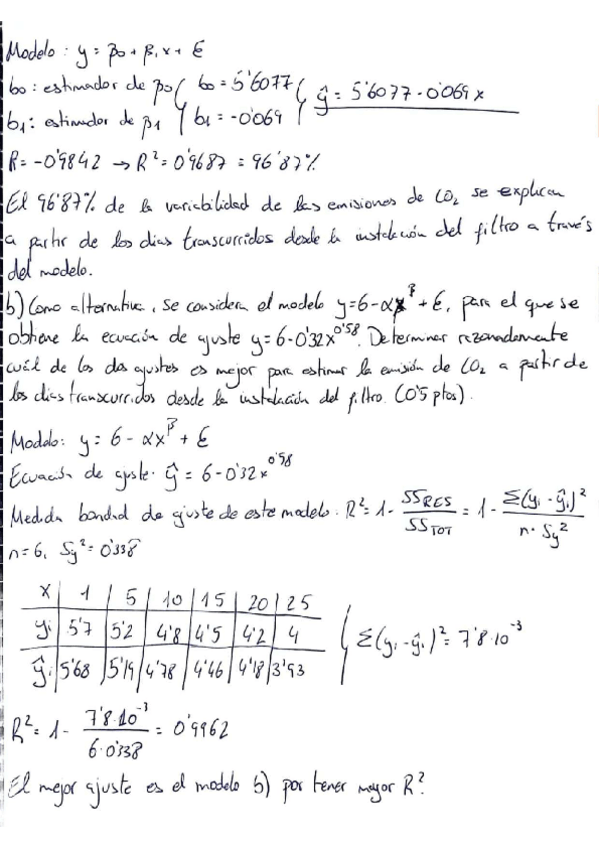 Modelo: y = β0 + β1 x + E
b0: estimador de β0 ( b0 = 5'6077 ( ŷ = 5'6077 - 0'069 x
b1: estimador de β1 ) b1 = -0'069 )
R = -0'9842 → R² = 0'9687 = 96'87%
El 96'87% de la variabilidad de las emisiones de CO2 se explican
a partir de los dias transcurridos desde la instalación del filtro a través
del modelo.
b) Como alternativa, se considera el modelo y=6-αx^β + E, para el que se
obtiene la ecuación de ajuste y=6-0'32x^0'58. Determinar razonadamente
cuál de los dos ajustes es mejor para estimar la emisión de CO2 a partir de
los dias transcurridos desde la instalación del filtro. (0'5 ptos).
Modelo: y = 6 - αx^β + E
Ecuación de ajuste: ŷ = 6 - 0'32x^0'58
Medida bondad de ajuste de este modelo. R² = 1 - SS_RES / SS_TOT = 1 - Σ(yi - ŷi)² / n · Sy²
n=6, Sy² = 0'338
x | 1 | 5 | 10 | 15 | 20 | 25
yi | 5'7 | 5'2 | 4'8 | 4'5 | 4'2 | 4
ŷi | 5'68 | 5'19 | 4'78 | 4'46 | 4'18 | 3'93
Σ(yi - ŷi)² = 7'8·10^-3
R² = 1 - 7'8·10^-3 / 6·0'338 = 0'9962
El mejor ajuste es el modelo b) por tener mayor R².